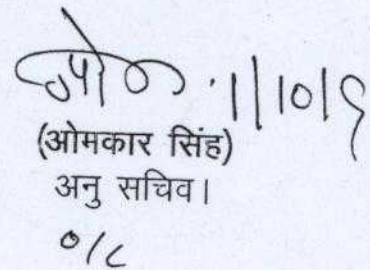 1/10/9
(ओमकार सिंह)
अनु सचिव।
o/c